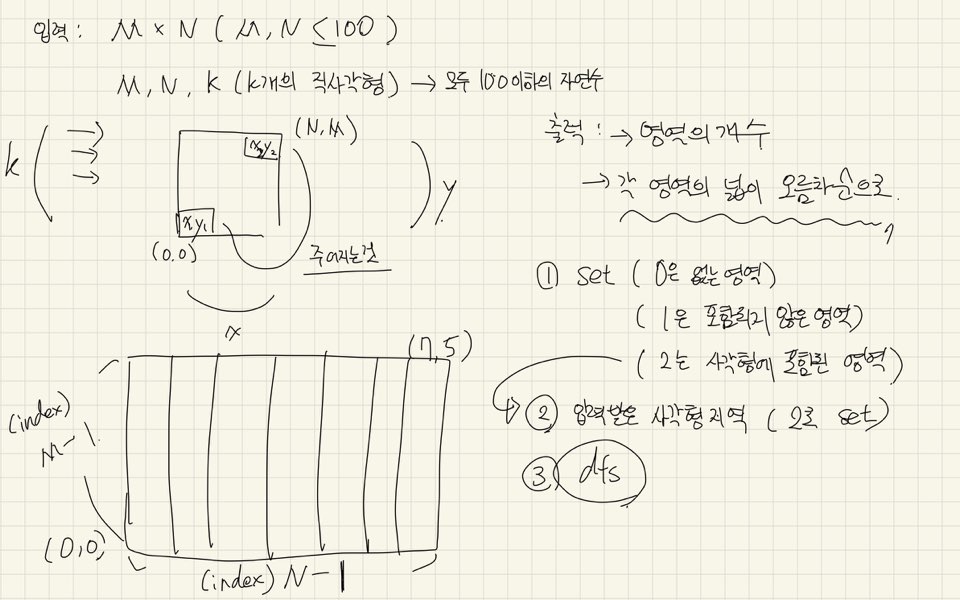 입력 : M × N ( M, N ≤ 100 )
M, N, K ( K개의 직사각형 ) → 모두 100이하의 자연수
K
(N, M)
x₂y₂
x y₁
(0,0)
주어지는것
y
x
출력 : → 영역의 개수
→ 각 영역의 넓이 오름차순으로.
① set ( 0은 없는 영역 )
( 1은 포함되지 않은 영역 )
( 2는 사각형에 포함된 영역 )
② 입력받은 사각형 지역 ( 2로 set )
③ dfs
(7,5)
(index)
M-1
(0,0)
(index) N-1